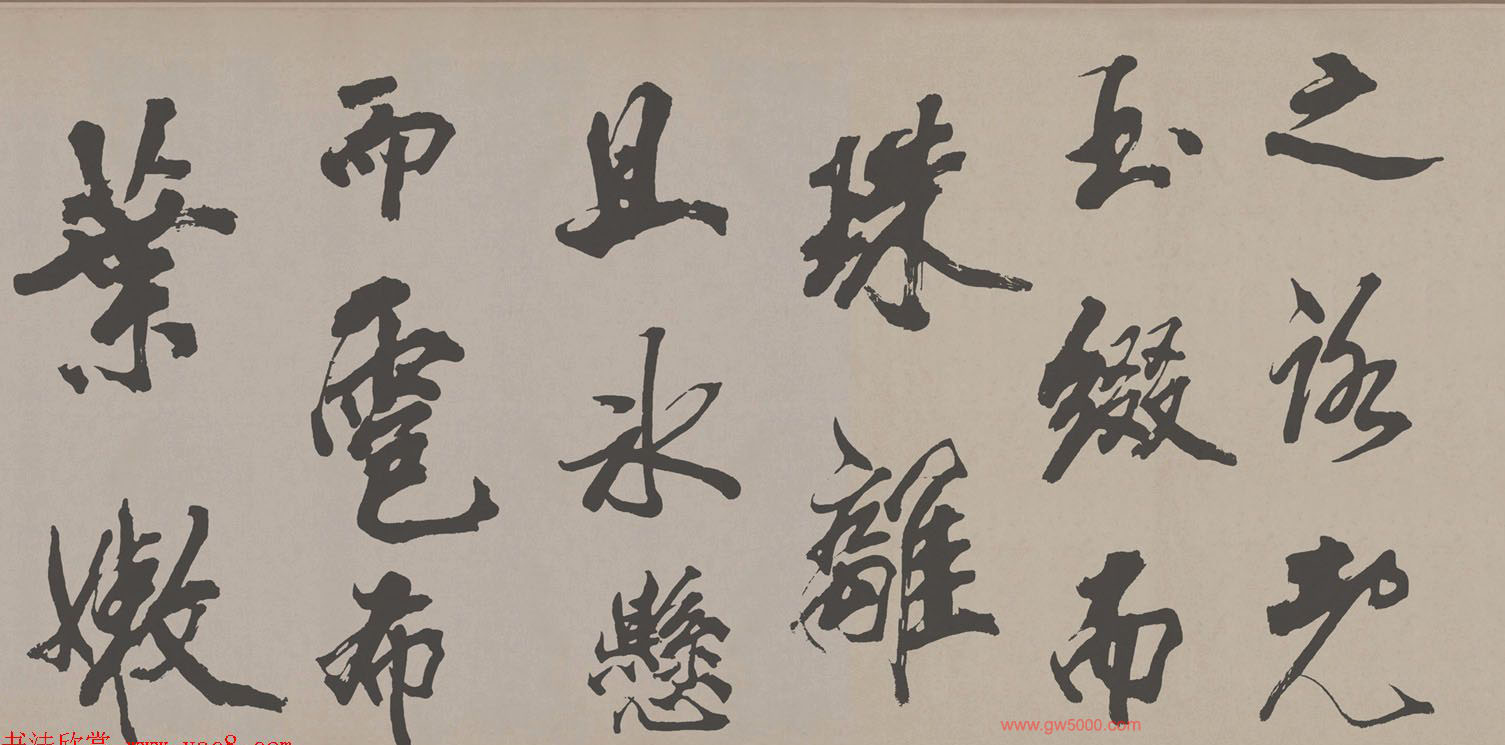 之路既
玉綴而
珠離
且冰懸
而雹布
葉嫩
www.gw5000.com
书法欣赏 www.yac8.com